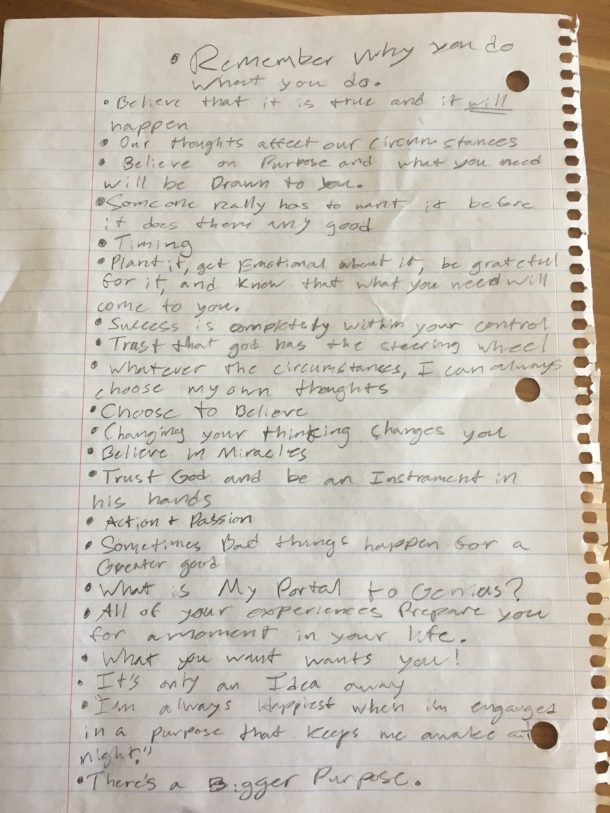 • Remember why you do
what you do.
• Believe that it is true and it will
happen
• Our thoughts affect our circumstances
• Believe on Purpose and what you need
will be Drawn to you.
• Someone really has to want it before
it does them any good
• Timing
• Plant it, get Emotional about it, be grateful
for it, and know that what you need will
come to you.
• Success is completely within your control
• Trust that god has the steering wheel
• Whatever the circumstances, I can always
choose my own thoughts
• Choose to Believe
• Changing your thinking changes you
• Believe in Miracles
• Trust God and be an Instrament in
his hands
• Action + Passion
• Sometimes Bad things happen for a
Greater good
• What is My Portal to Genius?
• All of your experiences Prepare you
for a moment in your life.
• What you want wants you!
• It's only an Idea away
• "I'm always Happiest when im enganges
in a purpose that keeps me awake at
night."
• There's a Bigger Purpose.